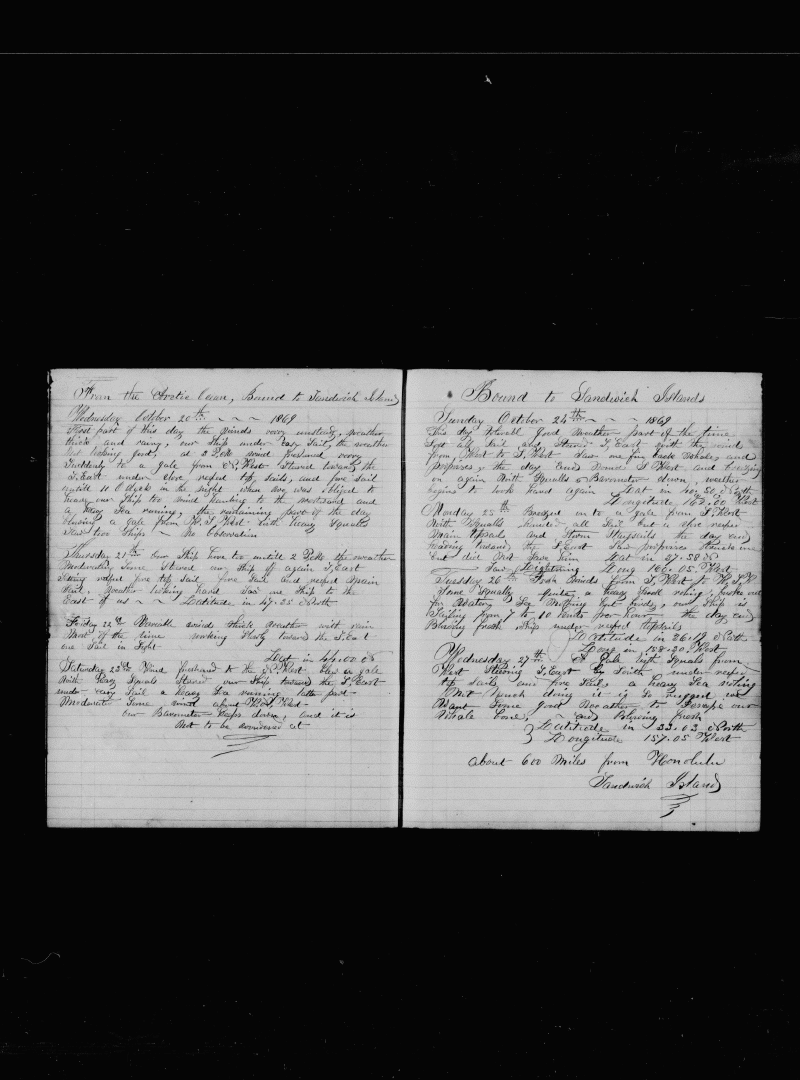 From the Arctic Ocean, Bound to Sandwich Islands
Wednesday October 20th ~ ~ ~ 1869
First part of this day the winds very unsteady, weather
thick and rainy, our Ship under easy Sail, the weather
not looking good, at 2 Oclk wind freshened very
Suddenly to a gale from N. West Steared toward the
S. East under close reefed top sails, and fore sail
untill 11 Oclock in the night when we was obliged to
heave our Ship too wind hauling to the westward and
a heavy Sea running, the remaining part of the day
blowing a gale from W. S. West with heavy Squalls
Saw two Ships ~ No Observation
Thursday 21st Our Ship hove too untill 2 Oclk the weather
Moderating Some Steared our Ship off again S, East
reefed fore top sail, fore Sail and reefed Main
Sail. Weather looking hard Saw one Ship to the
East of us ~ ~ Latitude in 47.25 North
Friday 22nd winds thick weather with rain
Most of the time working Slowly toward the S. East
one Sail in Sight
Lat in 44.00 N
Saturday 23rd Wind freshened to the S. West blew a gale
With heavy Squals Steared our Ship toward the S. East
under easy Sail a heavy Sea running latter part
Moderate Some wind about West
our Barometer keeps down, and it is
Not to be wondered at
Bound to Sandwich Islands
Sunday October 24th ~ ~ ~ 1869
This day Several good weather part of the time
Sett all Sail and Steared S, East with the wind
from West to S. West Saw one fin back whale, and
porpoises, the day Ends Wind S West and breezing
on again with Squalls & Barometer down, weather
begins to look hard again Lat in 40.50 North
Longitude 162.00 West
Monday 25th Breezed on to a gale from S. West
With Squalls handed all Sail but a close reefed
Main topsail and Storm Staysails the day end
heading toward the S, East Saw porpoises Struck one
but did Not Save him Lat in 37.58 N
Saw Lightening Long 160.05. West
Tuesday 26th Fresh Winds from S, West to W, S, W
Some Squally
for Watery Sea Nothing but birds, our Ship is
Sailing from 7 to 10 knots per hour the day end
Blowing fresh Ship under reefed topsails
Latitude in 36.19 North
Long in 158.20. West
Wednesday 27th A Gale with Squals from
West Stearing S, East by South under reefed
top sails and fore Sail, a heavy Sea
Not Much doing it is So rugged we
Want Some good Weather to Scrape our
Whale bone, and Blowing fresh
Latitude in 33.03 North
Longitude 157.05 West
about 600 Miles from Honolulu
Sandwich Islands